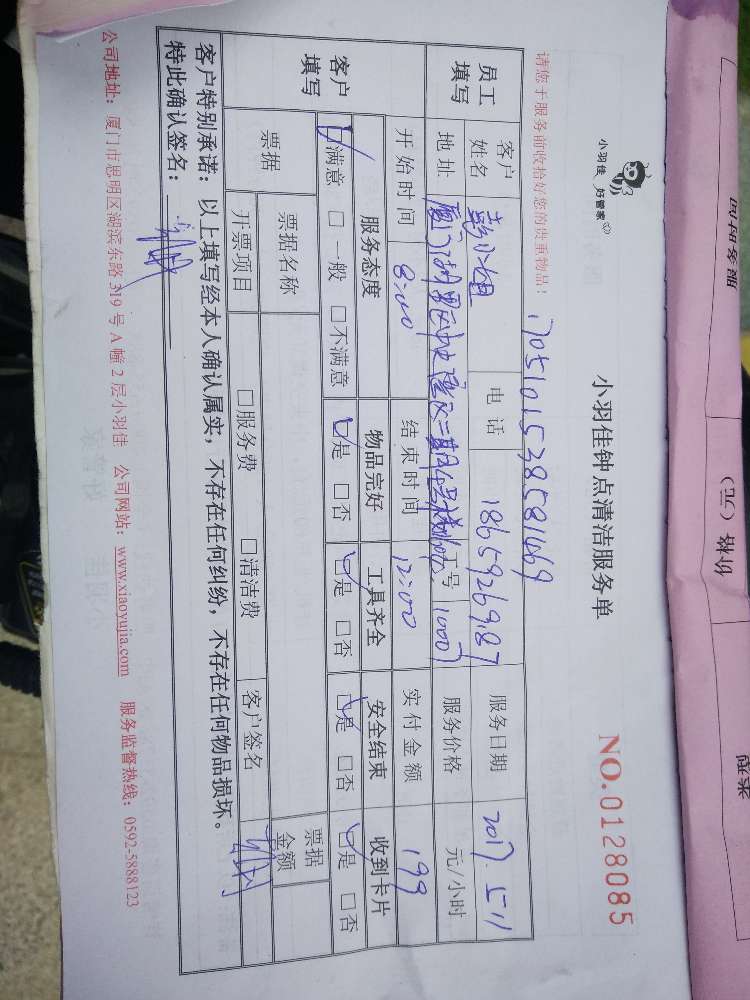 小羽佳 好管家
小羽佳钟点清洁服务单
NO.0128085
请您于服务前收拾好您的贵重物品！
1705101538581469
员工填写
客户姓名 彭小姐 电话 1865926987 服务日期 2017.5.11
地址 工号 10007 服务价格 元/小时
开始时间 8:00 结束时间 12:00 实付金额 199
客户填写
服务态度 物品完好 工具齐全 安全结束 收到卡片
☑满意 □一般 □不满意 ☑是 □否 ☑是 □否 ☑是 □否 ☑是 □否
票据 票据名称 票据金额
开票项目 □服务费 □清洁费 客户签名
客户特别承诺：以上填写经本人确认属实，不存在任何纠纷，不存在任何物品损坏。
特此确认签名：
公司地址：厦门市思明区湖滨东路319号A幢2层小羽佳 公司网站：www.xiaoyujia.com 服务监督热线：0592-5888123
价格（元）